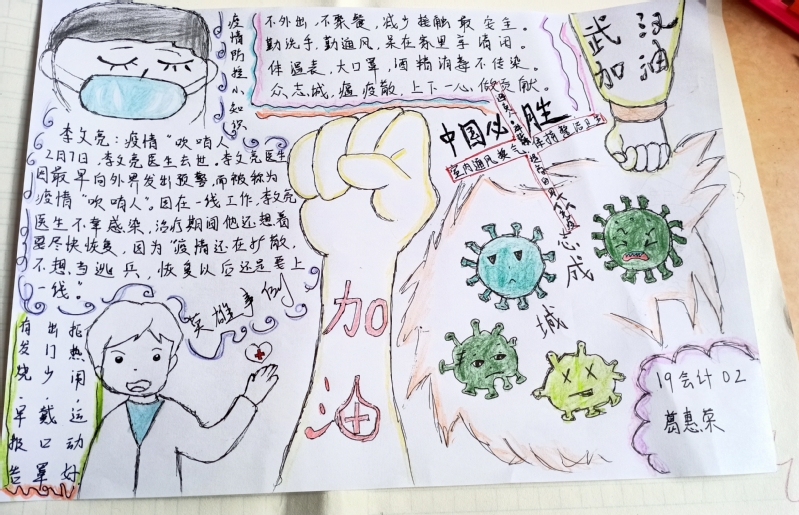 疫情防控小知识
不外出,不聚餐,减少接触最安全。
勤洗手,勤通风,呆在家里享清闲。
体温表,大口罩,酒精消毒不传染。
众志成,瘟疫散,上下一心,做贡献。
武汉
加油
李文亮:疫情"吹哨人"
2月7日,李文亮医生去世。李文亮医生
因最早向外界发出预警,而被称为
疫情"吹哨人"。因在一线工作,李文亮
医生不幸感染,治疗期间他还想着
要尽快恢复,因为"疫情还在扩散,
不想当逃兵,恢复以后还是要上
一线。"
英雄事例
中国必胜
室内通风换气
环境整治卫生
志成
城
加
油
拒热闹.运动好
出门少.戴口罩
有发烧.早报告
19会计02
葛惠荣